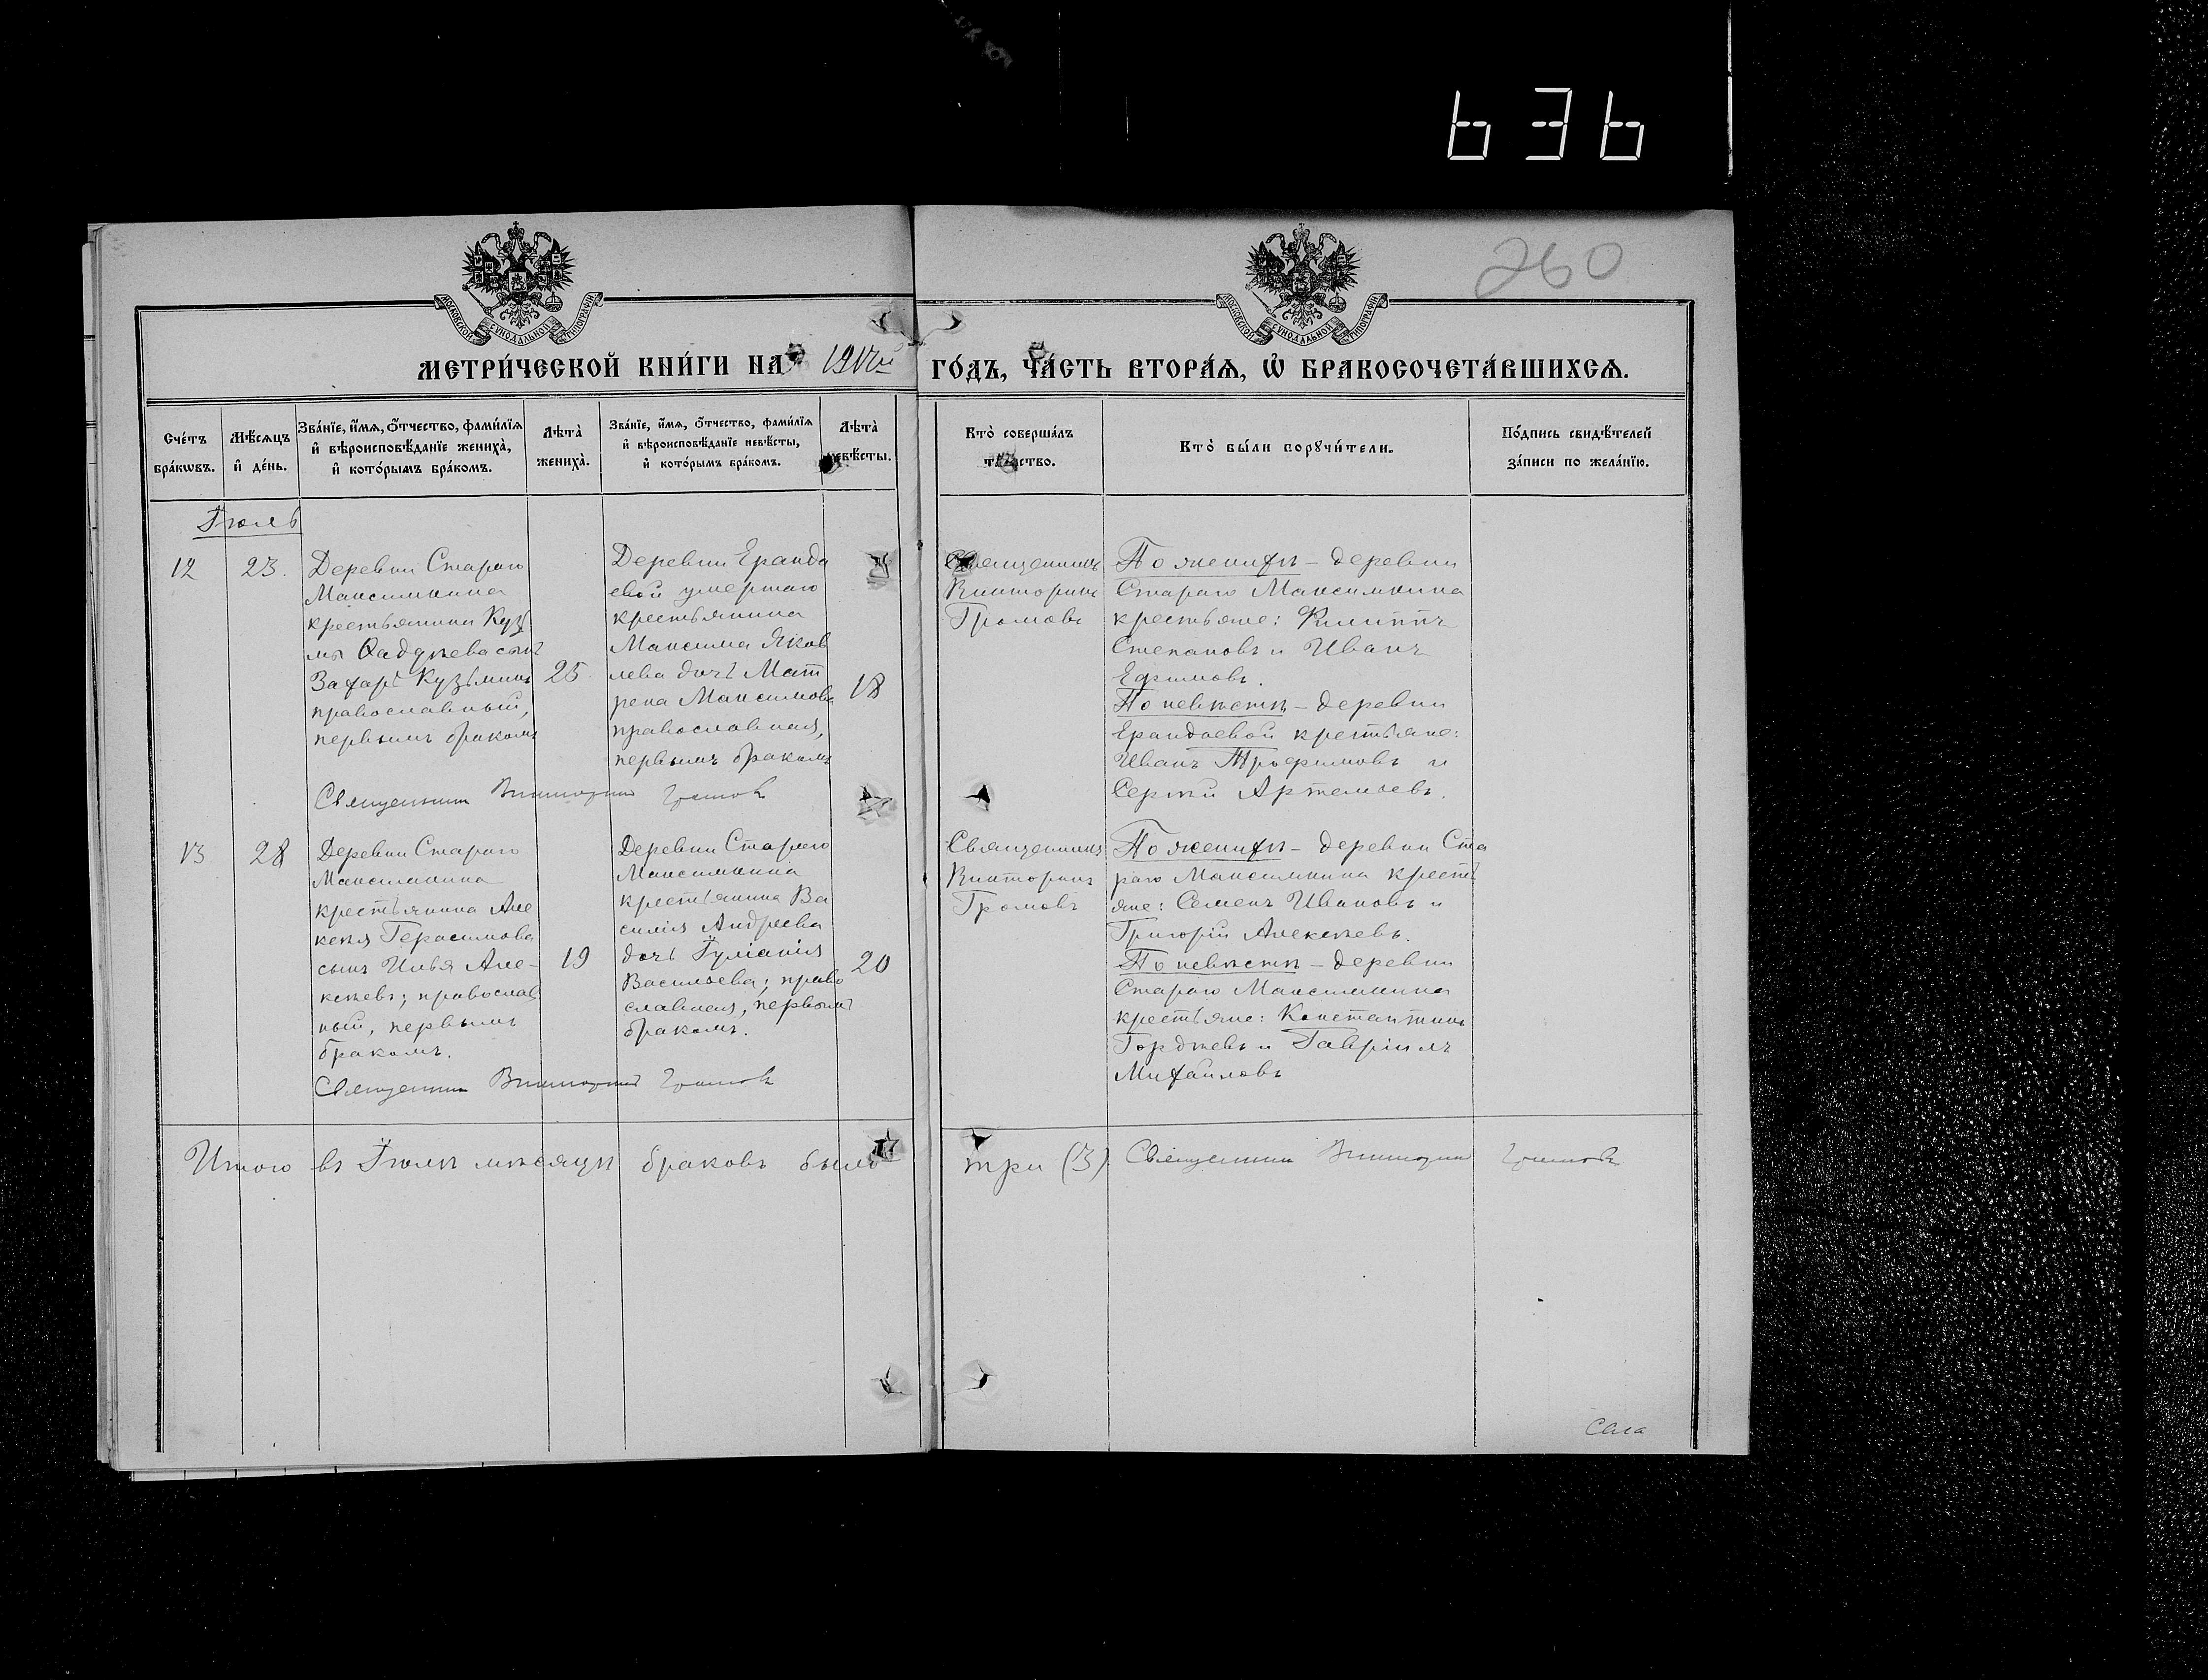 636
260
МОСКОВСКОЙ СѴНОДАЛЬНОЙ ТИПОГРАФІИ
МОСКОВСКОЙ СѴНОДАЛЬНОЙ ТИПОГРАФІИ
МЕТРИ́ЧЕСКОЙ КНИ́ГИ НА
ГО́ДЪ, ЧА́СТЬ ВТОРА́Я, Ѡ҆ БРАКОСОЧЕТА́ВШИХСЯ.
Сче́тъ
бра́кѡвъ.
Мѣ́сяцъ
и҆ де́нь.
Зва́нїе, и҆́мя, ѻ҆́тчество, фами́лїя
и҆ вѣроисповѣ́данїе жениха̀,
и҆ кото́рымъ бра́комъ.
Лѣта̀
жениха̀.
Зва́нїе, и҆́мя, ѻ҆́тчество, фами́лїя
и҆ вѣроисповѣ́данїе невѣ́сты,
и҆ кото́рымъ бра́комъ.
Лѣта̀
невѣ́сты.
Кто̀ соверша́лъ
та́инство.
Кто̀ бы́ли порꙋчи́тели.
По́дпись свидѣ́телей
за́писи по жела́нїю.
Іюль
12
23.
Деревни Стараго
Максимкина
крестьянина Кузь
мы Фаддѣева сынъ
Захаръ Кузьминъ
православный,
первымъ бракомъ
25
Деревни Еранда
евой умершаго
крестьянина
Максима Яков
лева дочь Мат
рена Максимова
православная,
первымъ бракомъ
18
Священникъ
Викторинъ
Громовъ
По женихѣ – деревни
Стараго Максимкина
крестьяне: Филиппъ
Степановъ и Иванъ
Ефимовъ.
По невѣстѣ – деревни
Ерандаевой крестьяне:
Иванъ Трофимовъ и
Сергѣй Артемьевъ.
Священникъ Викторинъ Громовъ
13
28
Деревни Стараго
Максимкина
крестьянина Але
ксѣя Герасимова
сынъ Илья Але-
ксѣевъ; православ
ный, первымъ
бракомъ.
19
Деревни Стараго
Максимкина
крестьянина Ва
силія Андреева
дочь Іуліанія
Васильева; право
славная, первымъ
бракомъ.
20
Священникъ
Викторинъ
Громовъ
По женихѣ – деревни Ста
раго Максимкина кресть
яне: Семенъ Ивановъ и
Григорій Алексѣевъ.
По невѣстѣ – деревни
Стараго Максимкина
крестьяне: Константинъ
Гордѣевъ и Гавріилъ
Михайловъ
Священникъ Викторинъ Громовъ
Итого въ Іюлѣ мѣсяцѣ браковъ было три (3) Священникъ Викторинъ Громовъ